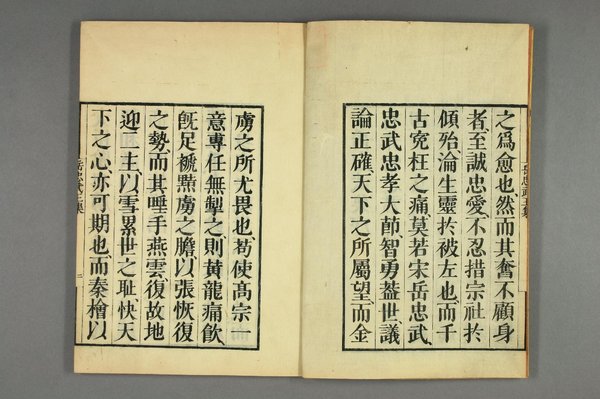 之爲愈也、然而其奮不顧身
者、至誠忠愛、不忍措宗社於
傾殆、淪生靈於被左也、而千
古寃枉之痛、莫若宋岳忠武、
忠武忠孝大節、智勇蓋世、議
論正確、天下之所屬望、而金
虜之所尤畏也、苟使高宗一
意專任無掣之、則黄龍痛飮
既足褫黠虜之膽、以張恢復
之勢、而其唾手燕雲、復故地
迎二主、以雪累世之耻、快天
下之心、亦可期也、而秦檜以